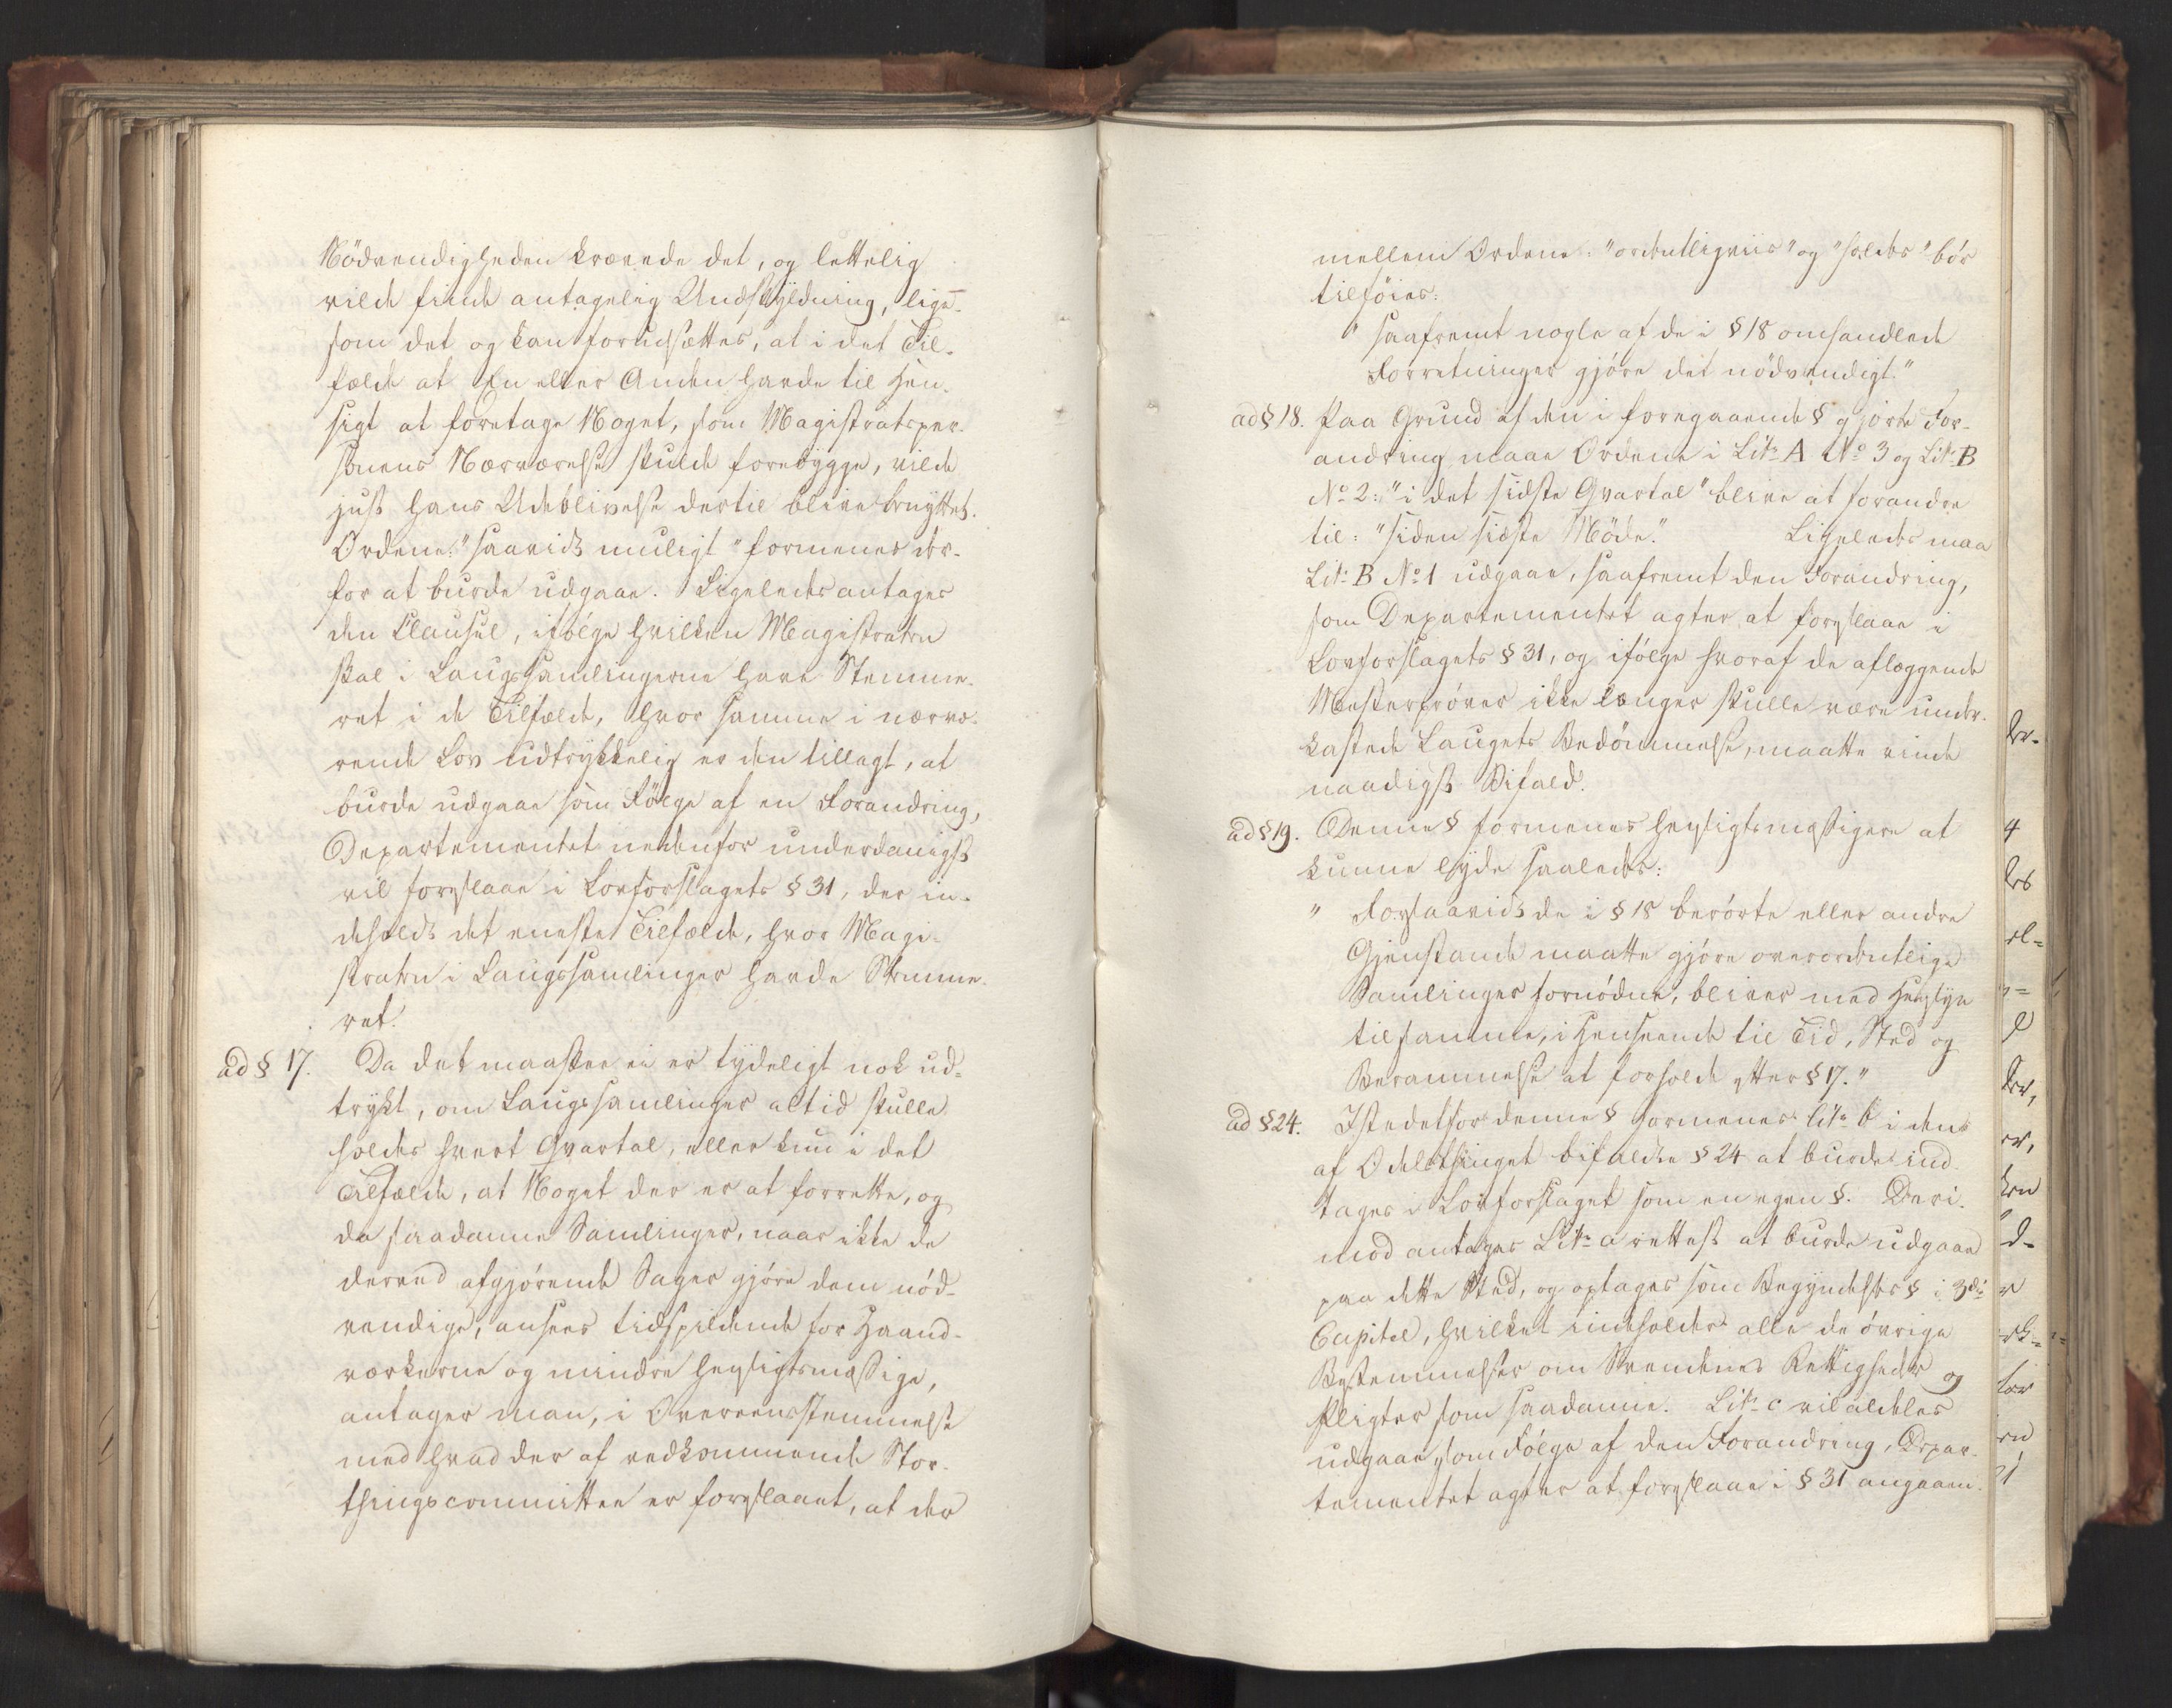 Nödvendigheden krævede det, og lettelig
vilde finde antagelig Undskyldning, lige-
som det og kan forudsættes, at i det Til-
fælde at En eller Anden havde til Hen-
sigt at foretage Noget, som Magistratsper-
sonens Nærværelse skulde forebygge, vilde
just hans Udeblivelse dertil blive benyttet.
Ordene: "saavidt muligt" formenes der-
for at burde udgaae. Ligeledes antages
den Clausul, ifölge hvilken Magistraten
skal i Laugssamlingerne have Stemme-
ret i de Tilfælde, hvor samme i nærvæ-
rende Lov udtrykkelig er den tillagt, at
burde udgaae som Fölge af en Forandring,
Departementet nedenfor underdanigst
vil foreslaae i Lovforslagets § 31, der in-
deholdt det eneste Tilfælde, hvor Magi-
straten i Laugssamlinger havde Stemme-
ret.
ad § 17. Da det maaskee ei er tydeligt nok ud-
trykt, om Laugssamlinger altid skulle
holdes hvert Qvartal, eller kun i det
Tilfælde, at Noget der er at forrette, og
da saadanne Samlinger, naar ikke de
derved afgjörende Sager gjöre dem nöd-
vendige, ansees tidspildende for Haand-
værkerne og mindre hensigtsmæssige,
antager man, i Overeensstemmelse
med hvad der af vedkommende Stor-
thingscommittee er foreslaaet, at der
mellem Ordene: "ordentligviis" og "holdes" bör
tilföies:
" saafremt nogle af de i § 18 omhandlede
Forretninger gjöre det nödvendigt."
ad § 18. Paa Grund af den i foregaaende § gjorte For-
andring maae Ordene i Litr A No 3 og Litr B
No 2: "i det sidste Qvartal" blive at forandre
til: "siden sidste Möde." Ligeledes maa
Litr B No 1 udgaae, saafremt den Forandring,
som Departementet agter at foreslaae i
Lovforslagets § 31, og ifölge hvoraf de aflæggende
Mesterpröver ikke længer skulle være under-
kastede Laugets Bedömmelse, maatte vinde
naadigst Bifald.
ad § 19. Denne § formenes hensigtsmæssigere at
kunne lyde saaledes:
" Forsaavidt de i § 18 berörte eller andre
Gjenstande maatte gjöre overordentlige
Samlinger fornödne, bliver med Hensyn
til samme, i Henseende til Tid, Sted og
Berammelse at forholde efter § 17."
ad § 24. Istedetfor denne § formenes Litr b i den
af Odelsthinget bifaldte § 24 at burde ind-
tages i Lovforslaget som en egen §. Deri-
mod antages Litr a rettest at burde udgaae
paa dette Sted, og optages som Begyndelses § i 3die
Capitel, hvilket indeholder alle de övrige
Bestemmelser om Svendenes Rettigheder og
Pligter som saadanne. Litr c vil aldeles
udgaae som Fölge af den Forandring, Depar-
tementet agter at foreslaae i § 31 angaaen-